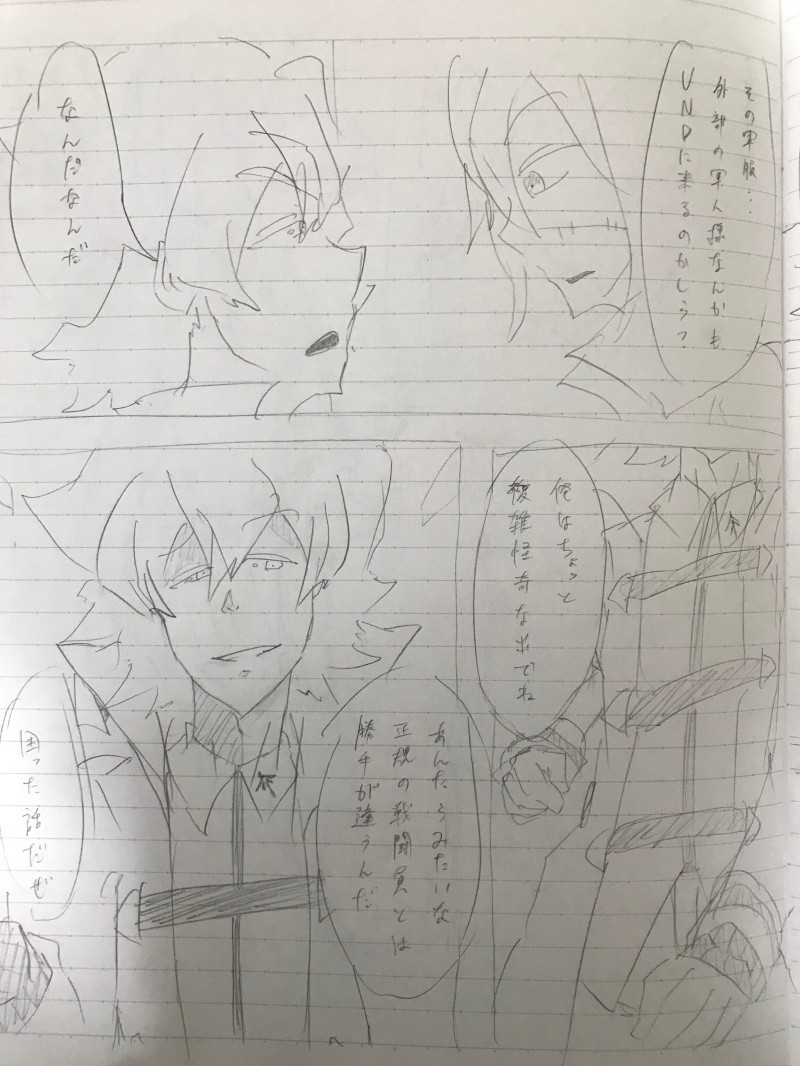 その軍服…
外部の軍人様なんかも
UNDに来るのかしら?
なんだなんだ
俺はちょっと
複雑怪奇な出でね
あんたらみたいな
正規の戦闘員とは
勝手が違うんだ
困った話だぜ